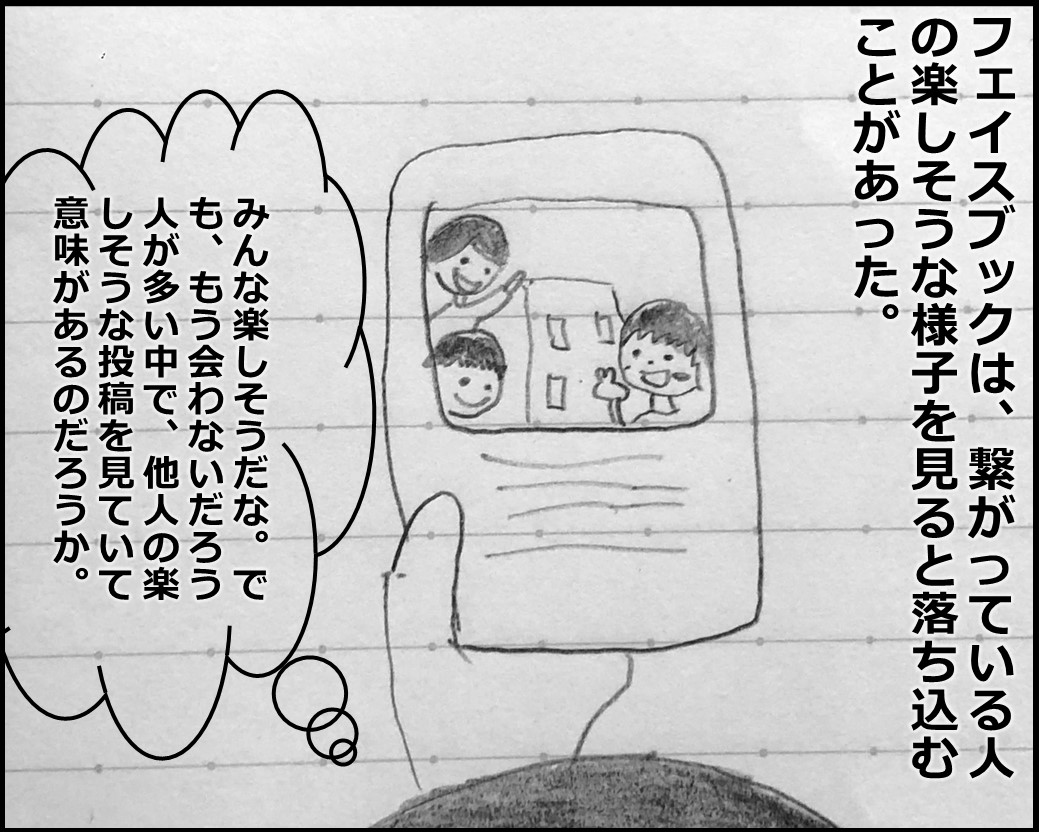 フェイスブックは、繋がっている人
の楽しそうな様子を見ると落ち込む
ことがあった。
みんな楽しそうだな。で
も、もう会わないだろう
人が多い中で、他人の楽
しそうな投稿を見ていて
意味があるのだろうか。